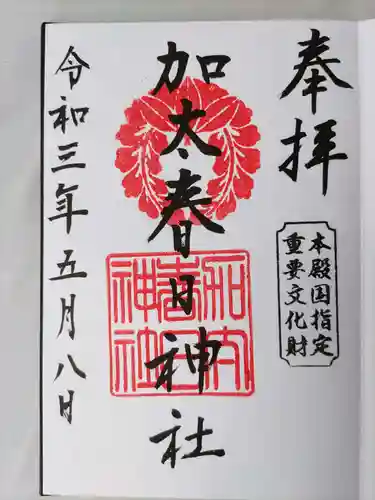 奉拝
本殿国指定
重要文化財
加太春日神社
加太
春日
神社
令和三年五月八日